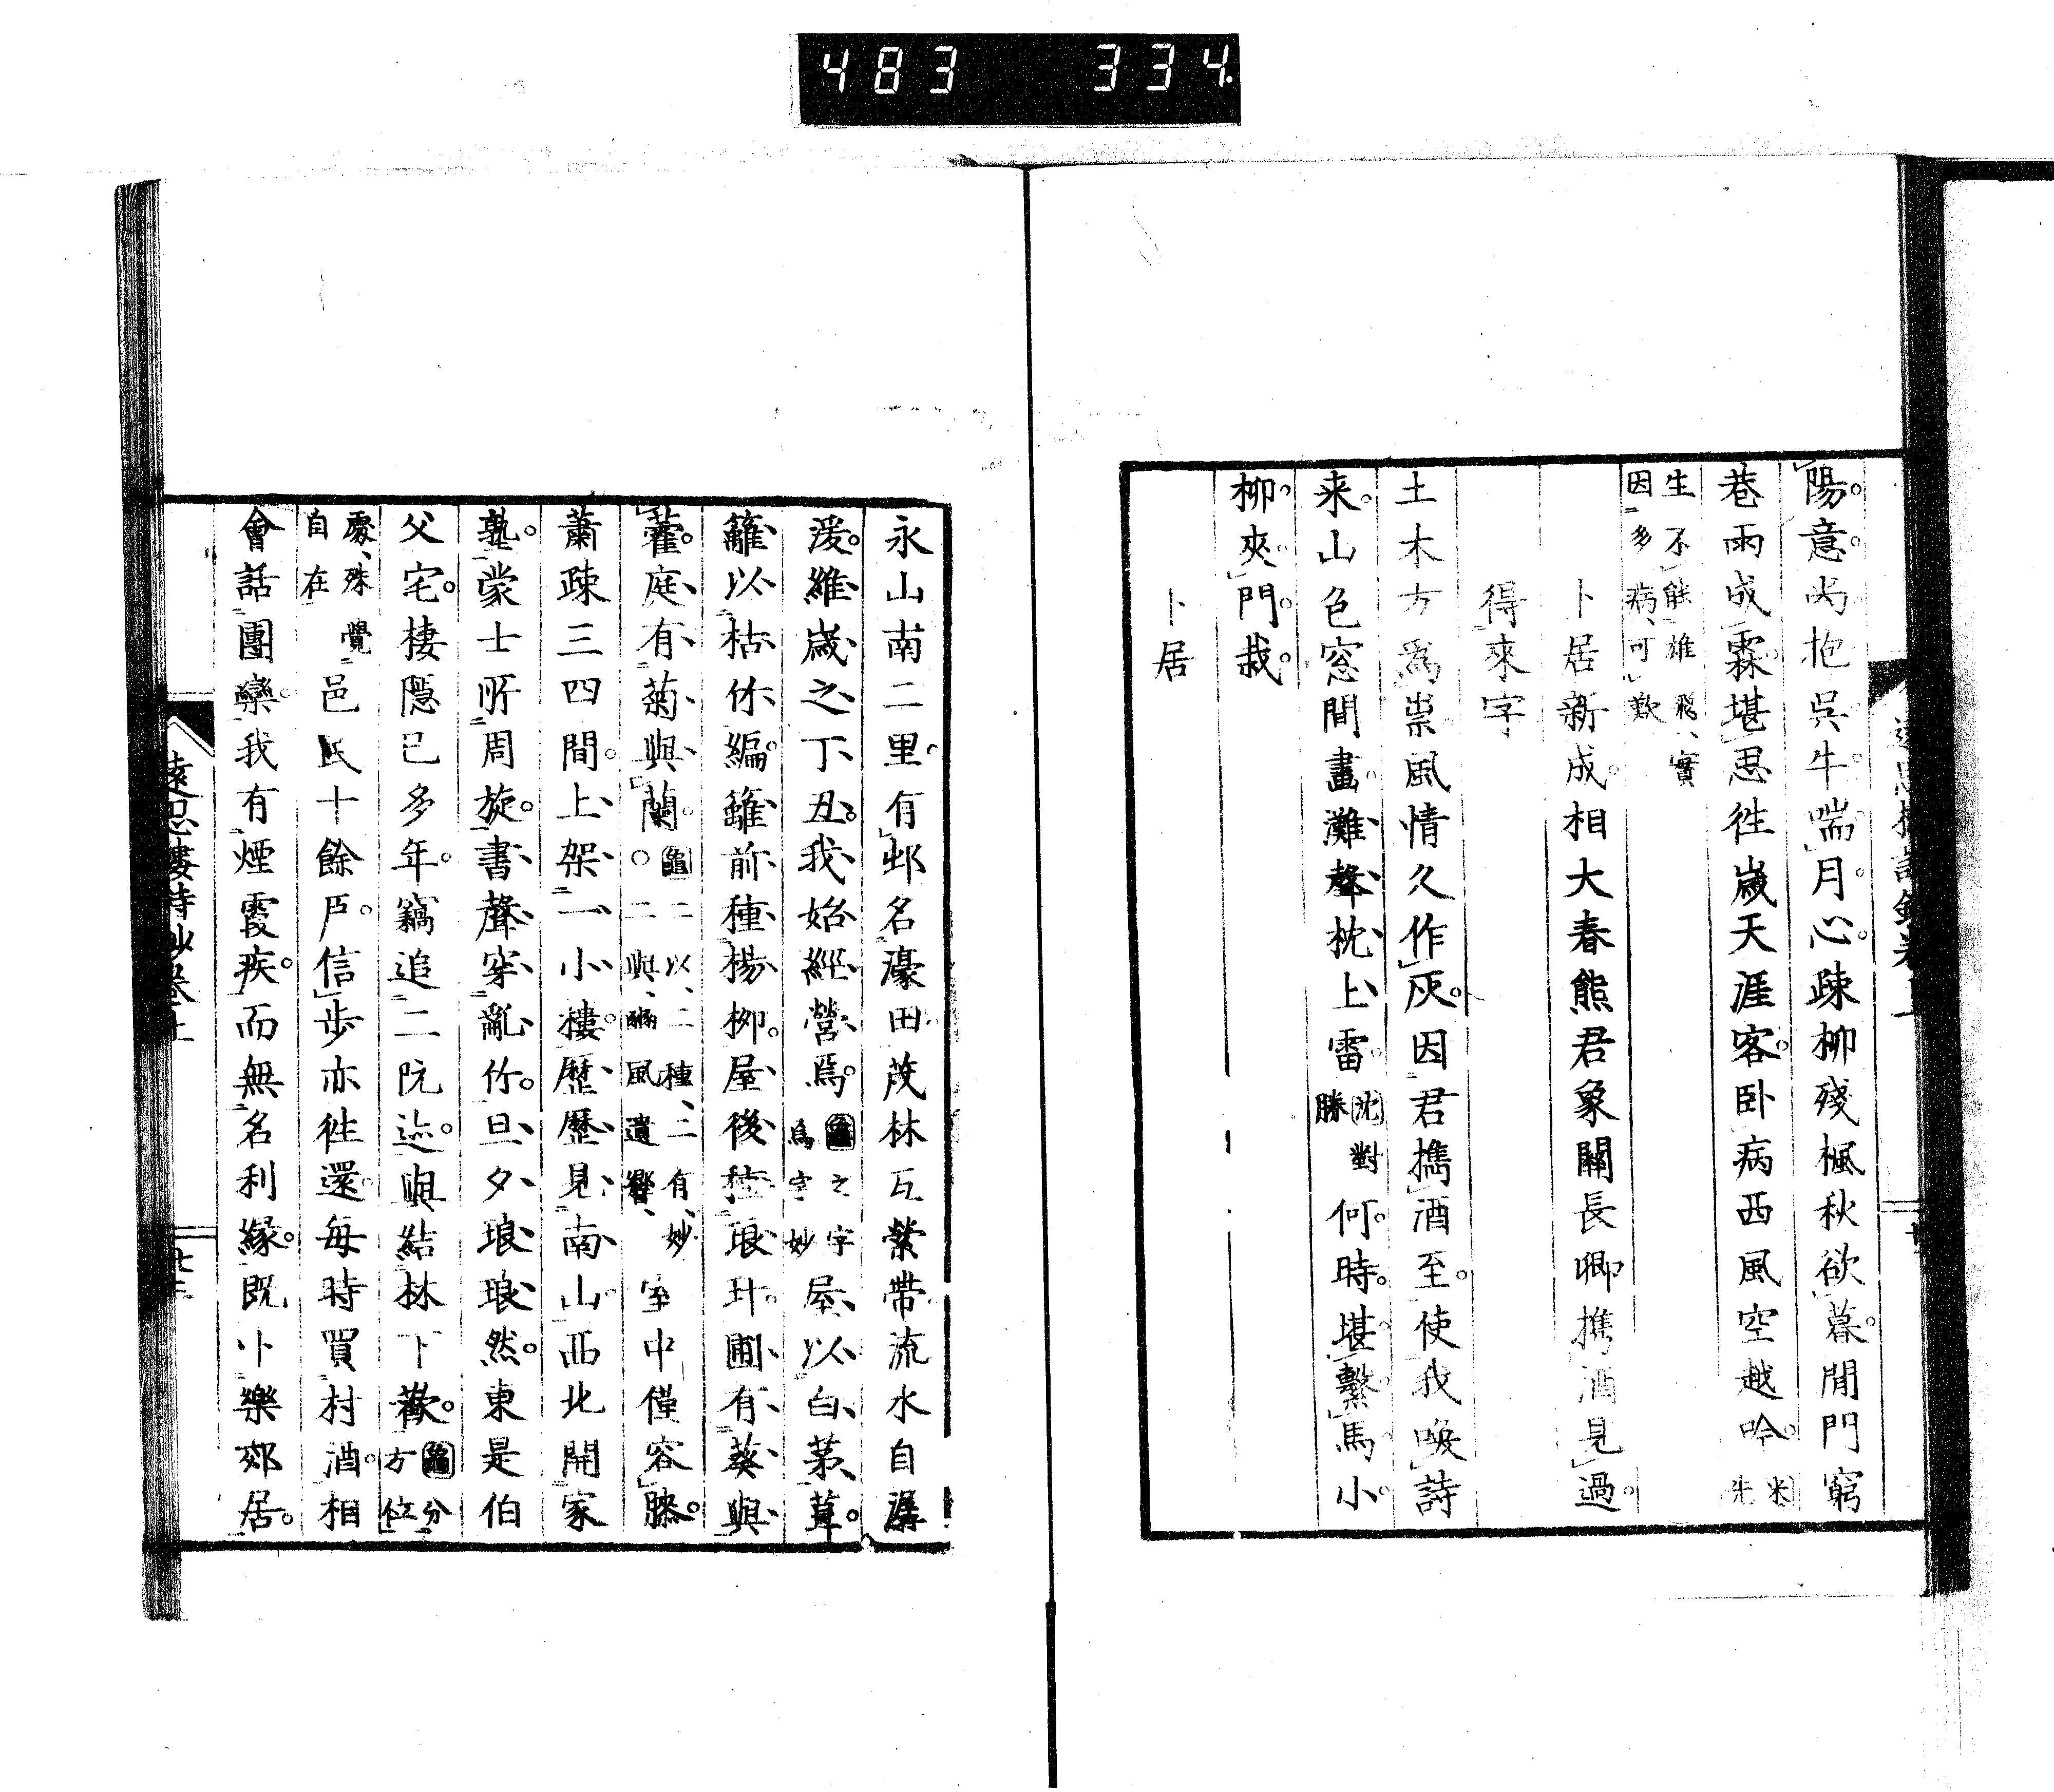 483 334
陽意尚抱呉牛喘月心疎柳殘楓秋欲暮閒門窮
巷雨成霖堪思徃歳天涯客臥病西風空越吟米先
生不能雄飛實
因多病可歎
卜居新成相大春熊君象關長卿携酒見過
得來字
土木方為祟風情久作灰因君携酒至使我喚詩
来山色窓間畫灘聲枕上雷沈對勝何時堪繫馬小
柳夾門栽
卜居
永山南二里有邨名濠田茂林互縈帶流水自潺
湲維歳之丁丑我始經營焉龜之字焉字妙屋以白茅葺
籬以枯竹編籬前種楊柳屋後植琅玕圃有葵與
藿庭有菊與蘭龜二以二種二有妙二與風遺響室中僅容膝
蕭疎三四間上架一小樓歷歷見南山西北開家
塾蒙士所周旋書聲穿亂竹旦夕琅琅然東是伯
父宅棲隱已多年竊追二阮迹與結林下歡龜分方位
處殊覺自在邑民十餘戸信步亦徃還毎時買村酒相
會話團欒我有煙霞疾而無名利縁既卜樂郊居
遠思樓詩鈔卷上